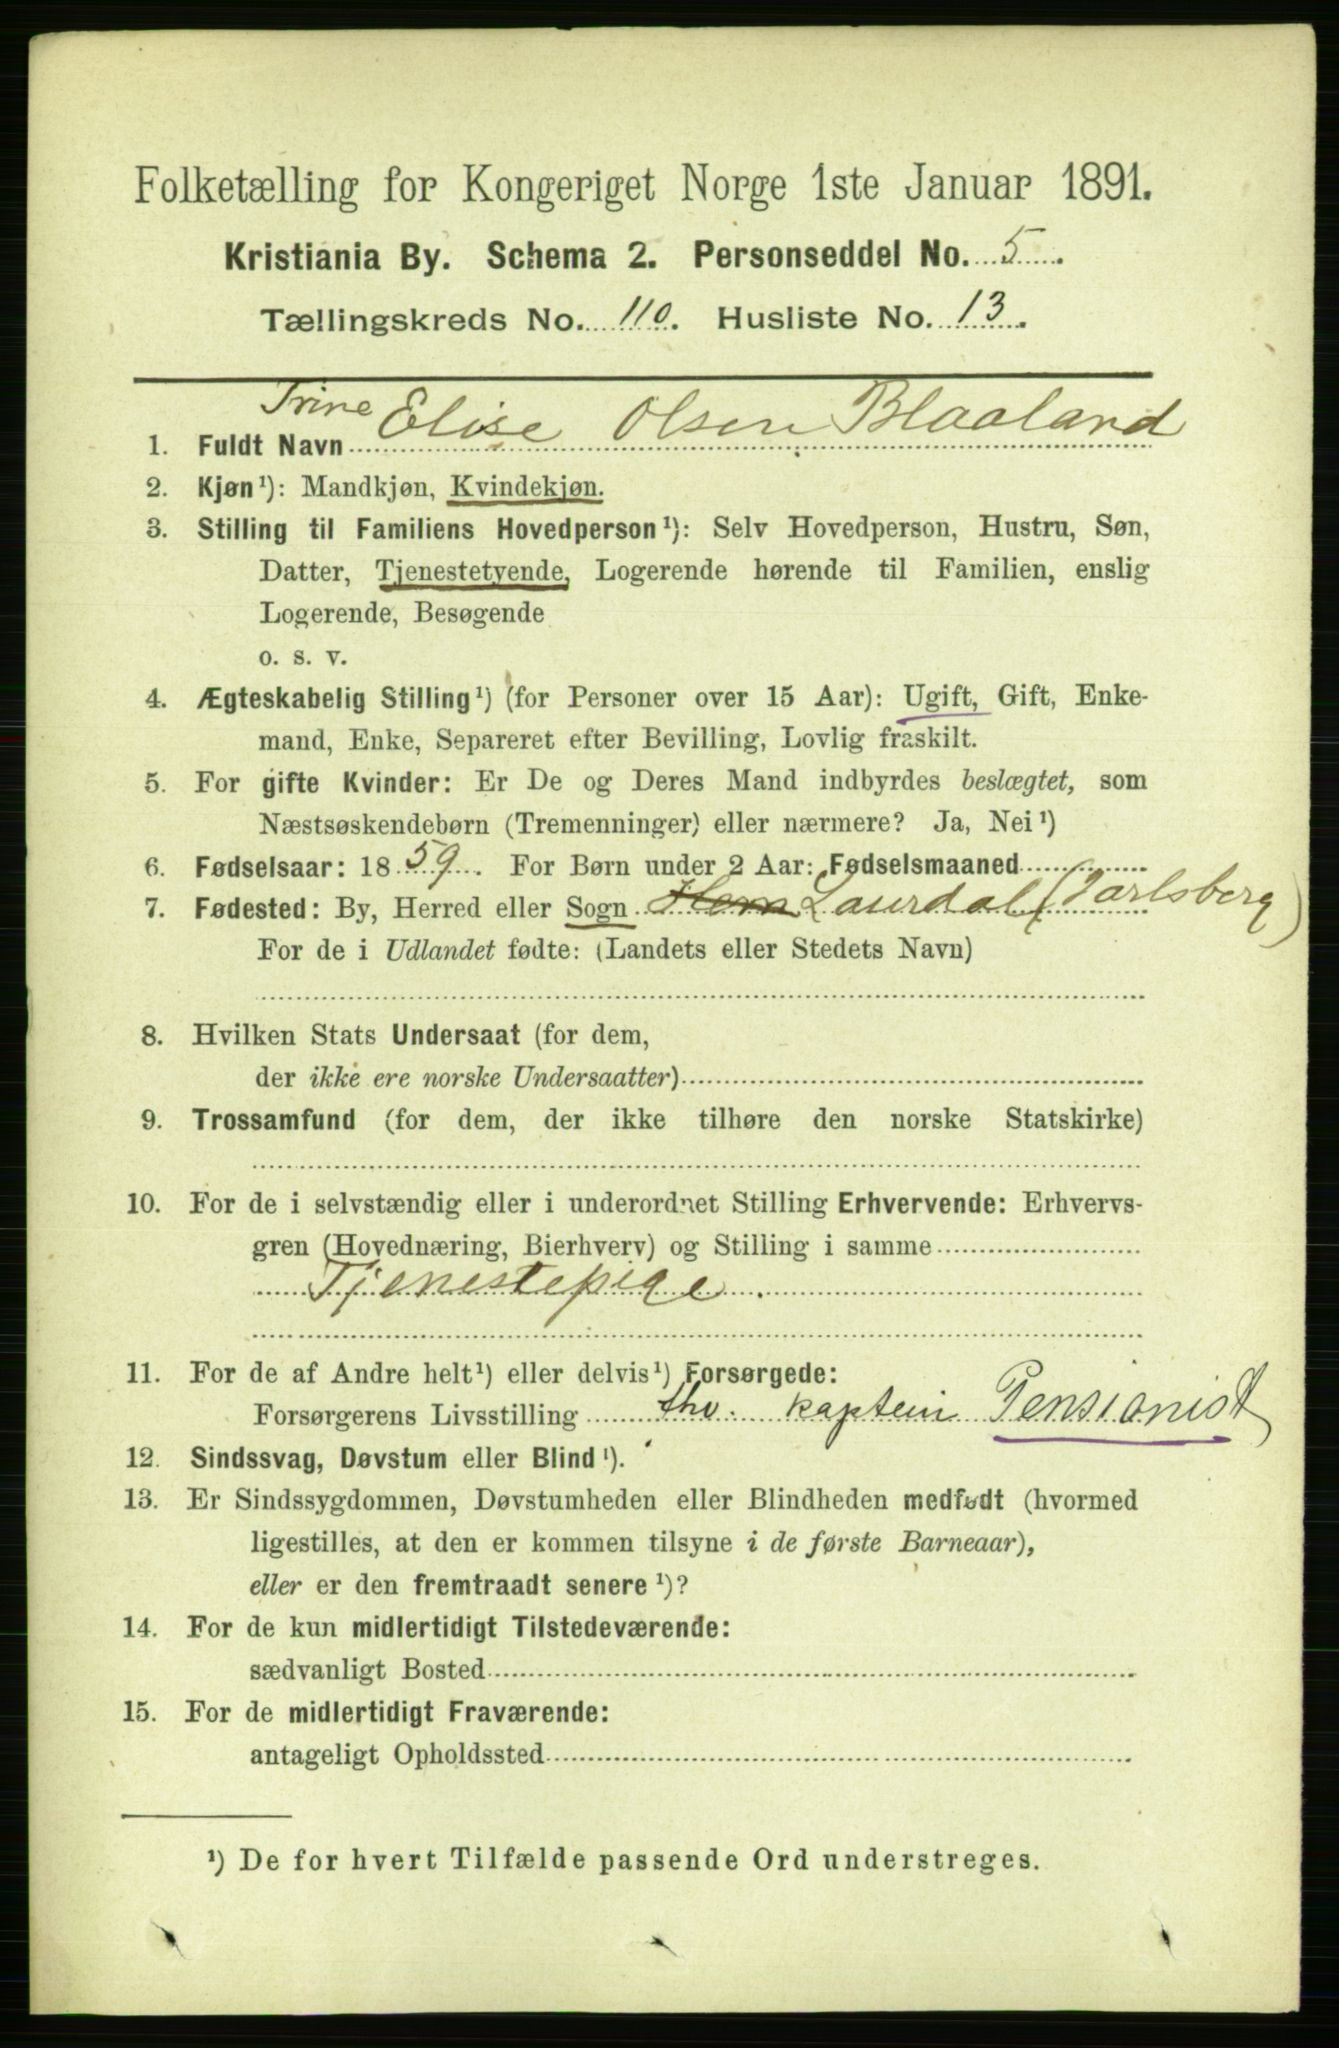 Folketælling for Kongeriget Norge 1ste Januar 1891.
Kristiania By. Schema 2. Personseddel No. 5.
Tællingskreds No. 110. Husliste No. 13.
Trine
1. Fuldt Navn Elise Olsen Blaaland
2. Kjøn¹): Mandkjøn, Kvindekjøn.
3. Stilling til Familiens Hovedperson¹): Selv Hovedperson, Hustru, Søn,
Datter, Tjenestetyende, Logerende hørende til Familien, enslig
Logerende, Besøgende
o. s. v.
4. Ægteskabelig Stilling¹) (for Personer over 15 Aar): Ugift, Gift, Enke-
mand, Enke, Separeret efter Bevilling, Lovlig fraskilt.
5. For gifte Kvinder: Er De og Deres Mand indbyrdes beslægtet, som
Næstsøskendebørn (Tremenninger) eller nærmere? Ja, Nei¹)
6. Fødselsaar: 1859. For Børn under 2 Aar: Fødselsmaaned
7. Fødested: By, Herred eller Sogn Hem Laurdal (Jarlsberg)
For de i Udlandet fødte: (Landets eller Stedets Navn)
8. Hvilken Stats Undersaat (for dem,
der ikke ere norske Undersaatter)
9. Trossamfund (for dem, der ikke tilhøre den norske Statskirke)
10. For de i selvstændig eller i underordnet Stilling Erhvervende: Erhvervs-
gren (Hovednæring, Bierhverv) og Stilling i samme
Tjenestepige.
11. For de af Andre helt¹) eller delvis¹) Forsørgede:
Forsørgerens Livsstilling kaptein Pensionist
12. Sindssvag, Døvstum eller Blind¹).
13. Er Sindssygdommen, Døvstumheden eller Blindheden medfødt (hvormed
ligestilles, at den er kommen tilsyne i de første Barneaar),
eller er den fremtraadt senere¹)?
14. For de kun midlertidigt Tilstedeværende:
sædvanligt Bosted
15. For de midlertidigt Fraværende:
antageligt Opholdssted
¹) De for hvert Tilfælde passende Ord understreges.